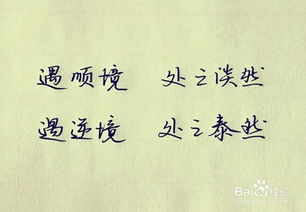 遇顺境 处之淡然
遇逆境 处之泰然
Baidu经验